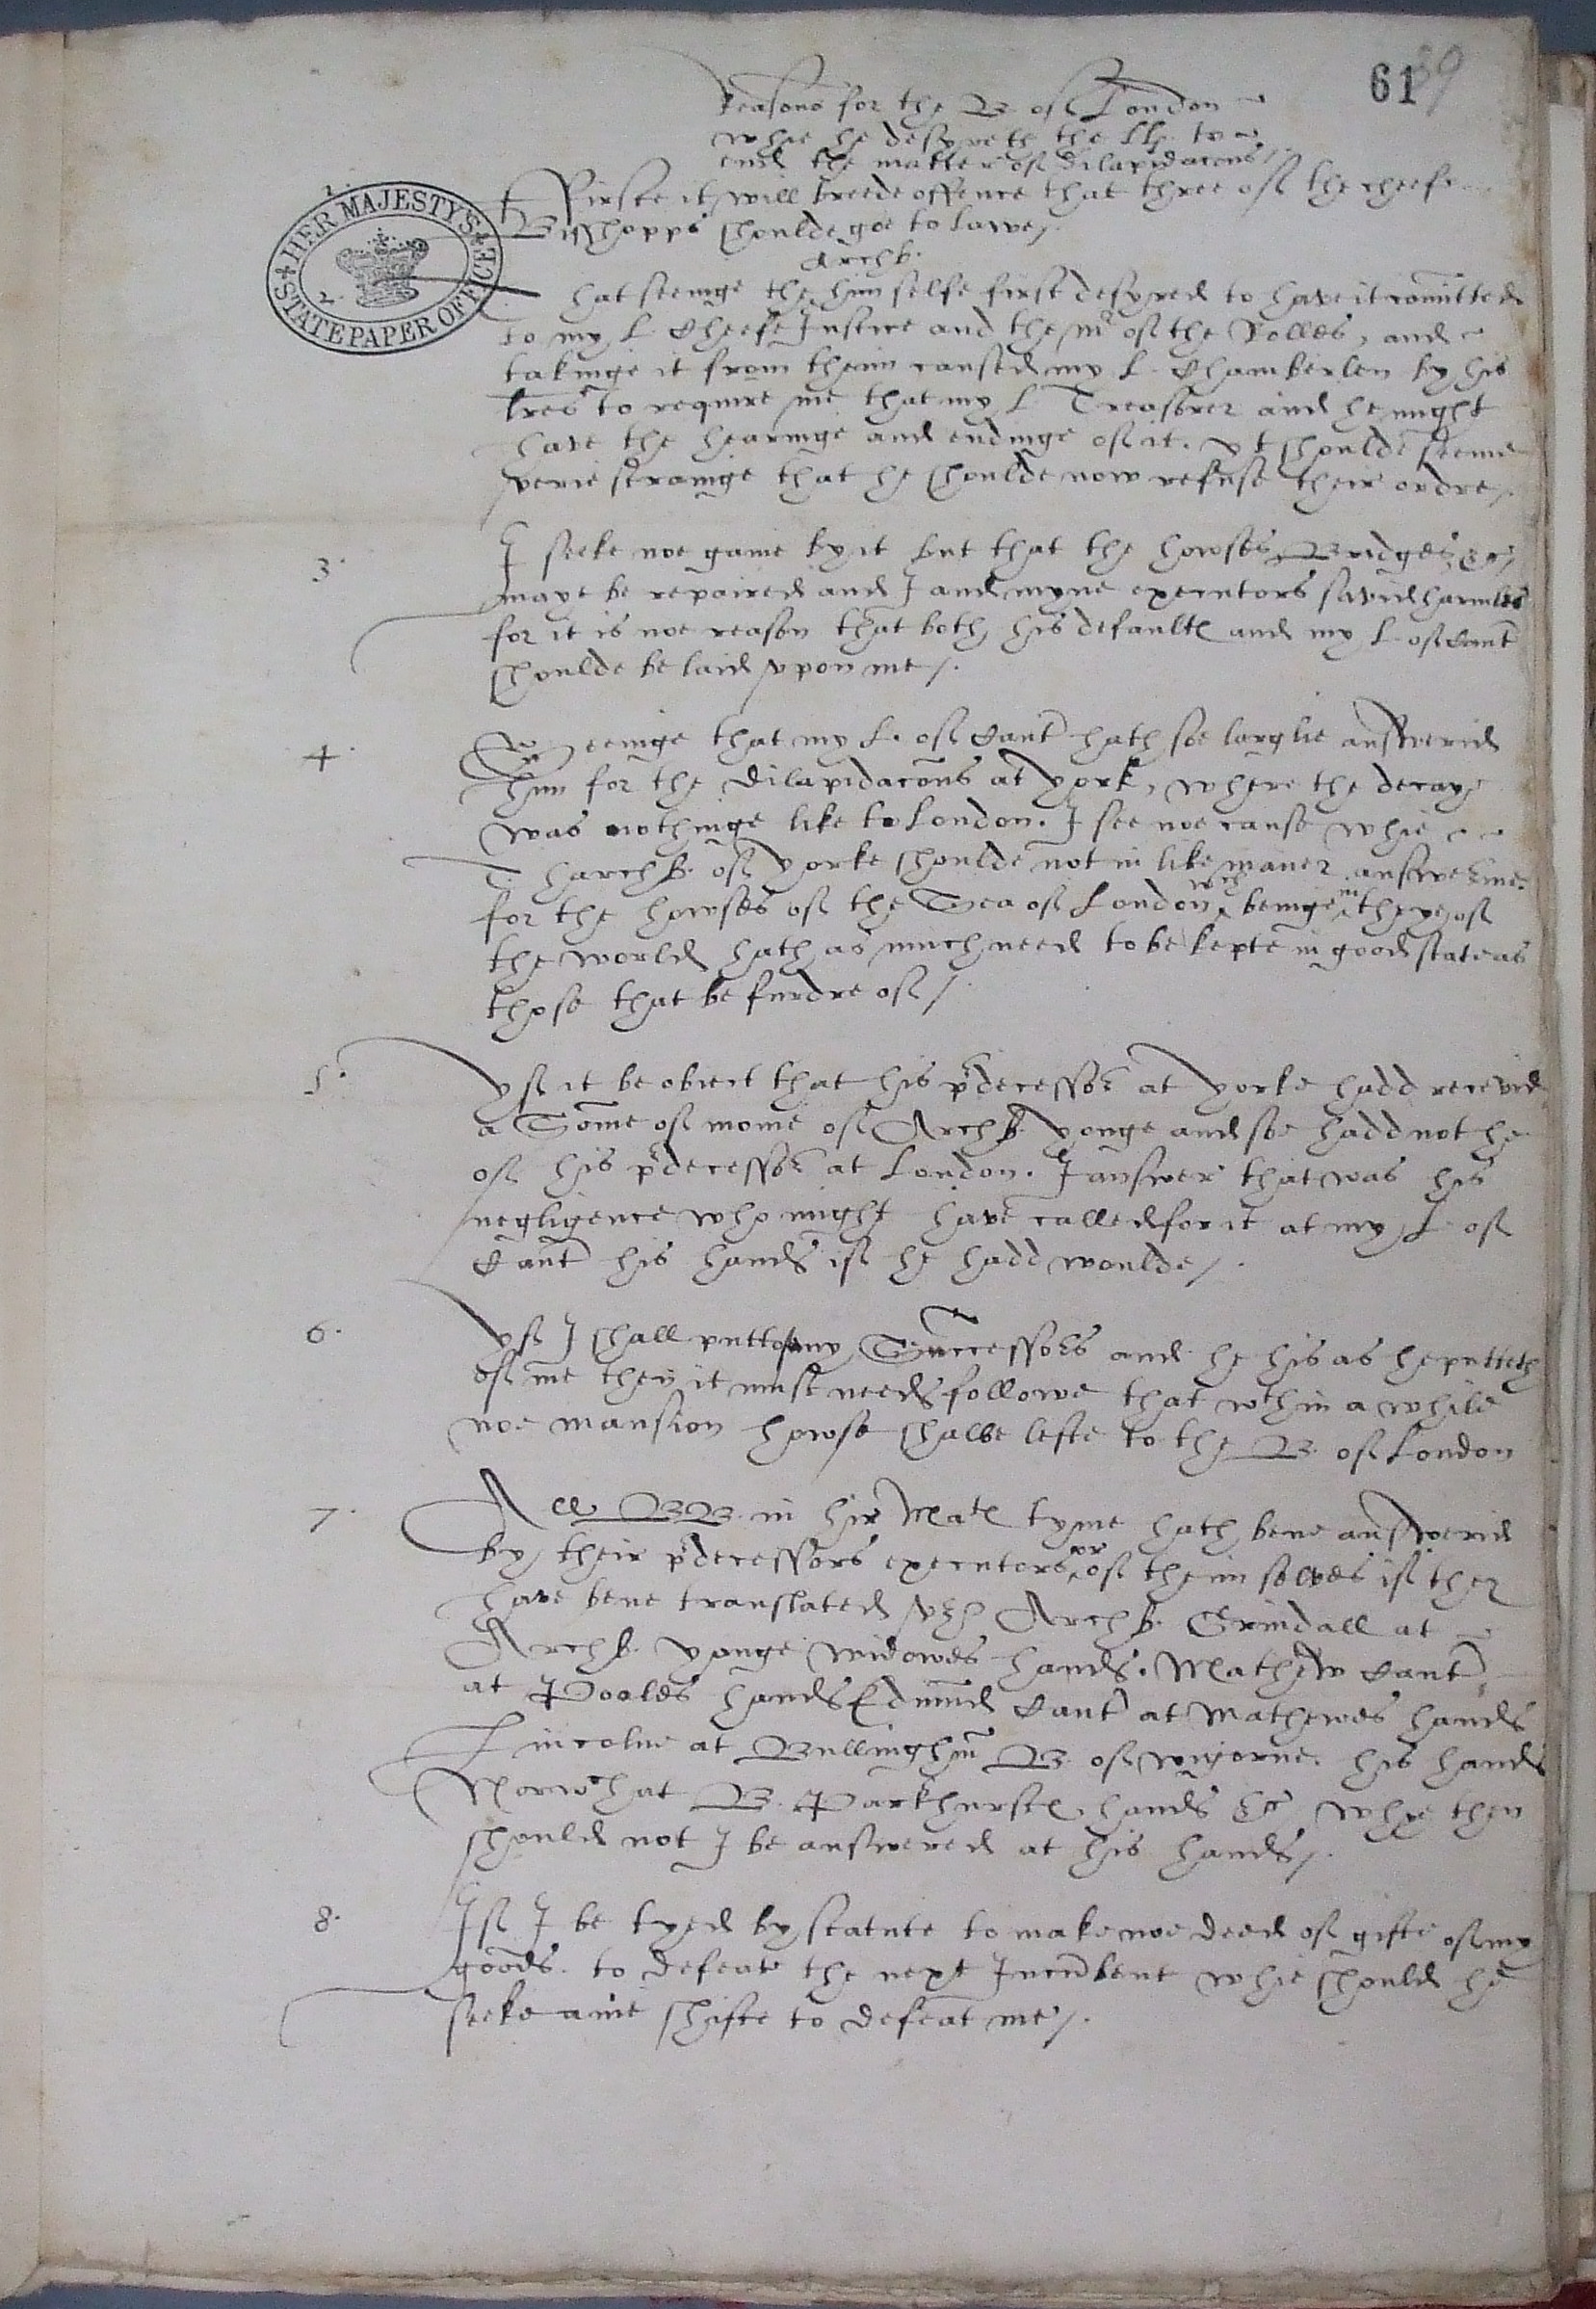 61 89
Reasons for the B. of London
whie he desyreth the LLs. to
end the matter of dilapidacons /.
1.
Firste it will breede offence that three of the cheefe
Bisshopps shoulde goe to lawe /.
HER MAJESTY'S STATE PAPER OFFICE
2.
That seeinge the Archb. him selfe first desyred to have it comitted
to my L Cheefe Justice and the Mr of the Rolles, and
takinge it from theim caused my L. Chamberlen by his
lres to require me that my L Treasorer and he might
have the hearinge and endinge of it. yt shoulde seeme
verie straunge that he shoulde now refuse their ordre /.
3.
I seeke noe gaine by it but that the howses Bridges &c
maye be repaired and I and myne executors savid harmles
for it is noe reason that both his defaulte and my L. of Cant
shoulde be laid upon me /.
4.
Seeinge that my L. of Cant hath soe larglie answerid
him for the dilapidacons at york, where the decaye
was nothinge like to London. I see noe cause whie
Tharchb. of yorke shoulde not in like maner answer me
for the howses of the Sea of London wch beinge in theye of
the world hath as much need to be kepte in good state as
those that be furdre of /.
5.
yf it be obiect that his predecessor at yorke hadd recevid
a Some of monie of Archb. yonge and soe hadd not he
of his predecessor at London. I answer that was his
negligence who might have called for it at my L of
Cant his hands if he hadd woulde /.
6.
yf I shall putt of my Successors and he his as he putteth
of me then it must needs followe that wthin a while
noe mansion howse shalbe lefte to the B. of London
7.
All BB. in hir Mate tyme hath bene answerid
by their predecessors executors or of theim selves if they
have bene translated vz Archb. Grindall at
Archb. yonge widowes hands. Mathew Cant
at Pooles hands Edmund Cant at Mathewes hands
Lincolne at Bullinghm B. of wigorne. his hands
Norwch at B. Parkhurste. hands &c whye then
should not I be answered at his hands /.
8.
If I be tyed by statute to make noe deed of gifte of my
goods. to defeate the next Incumbent whie should he
seeke anie shifte to defeat me /.